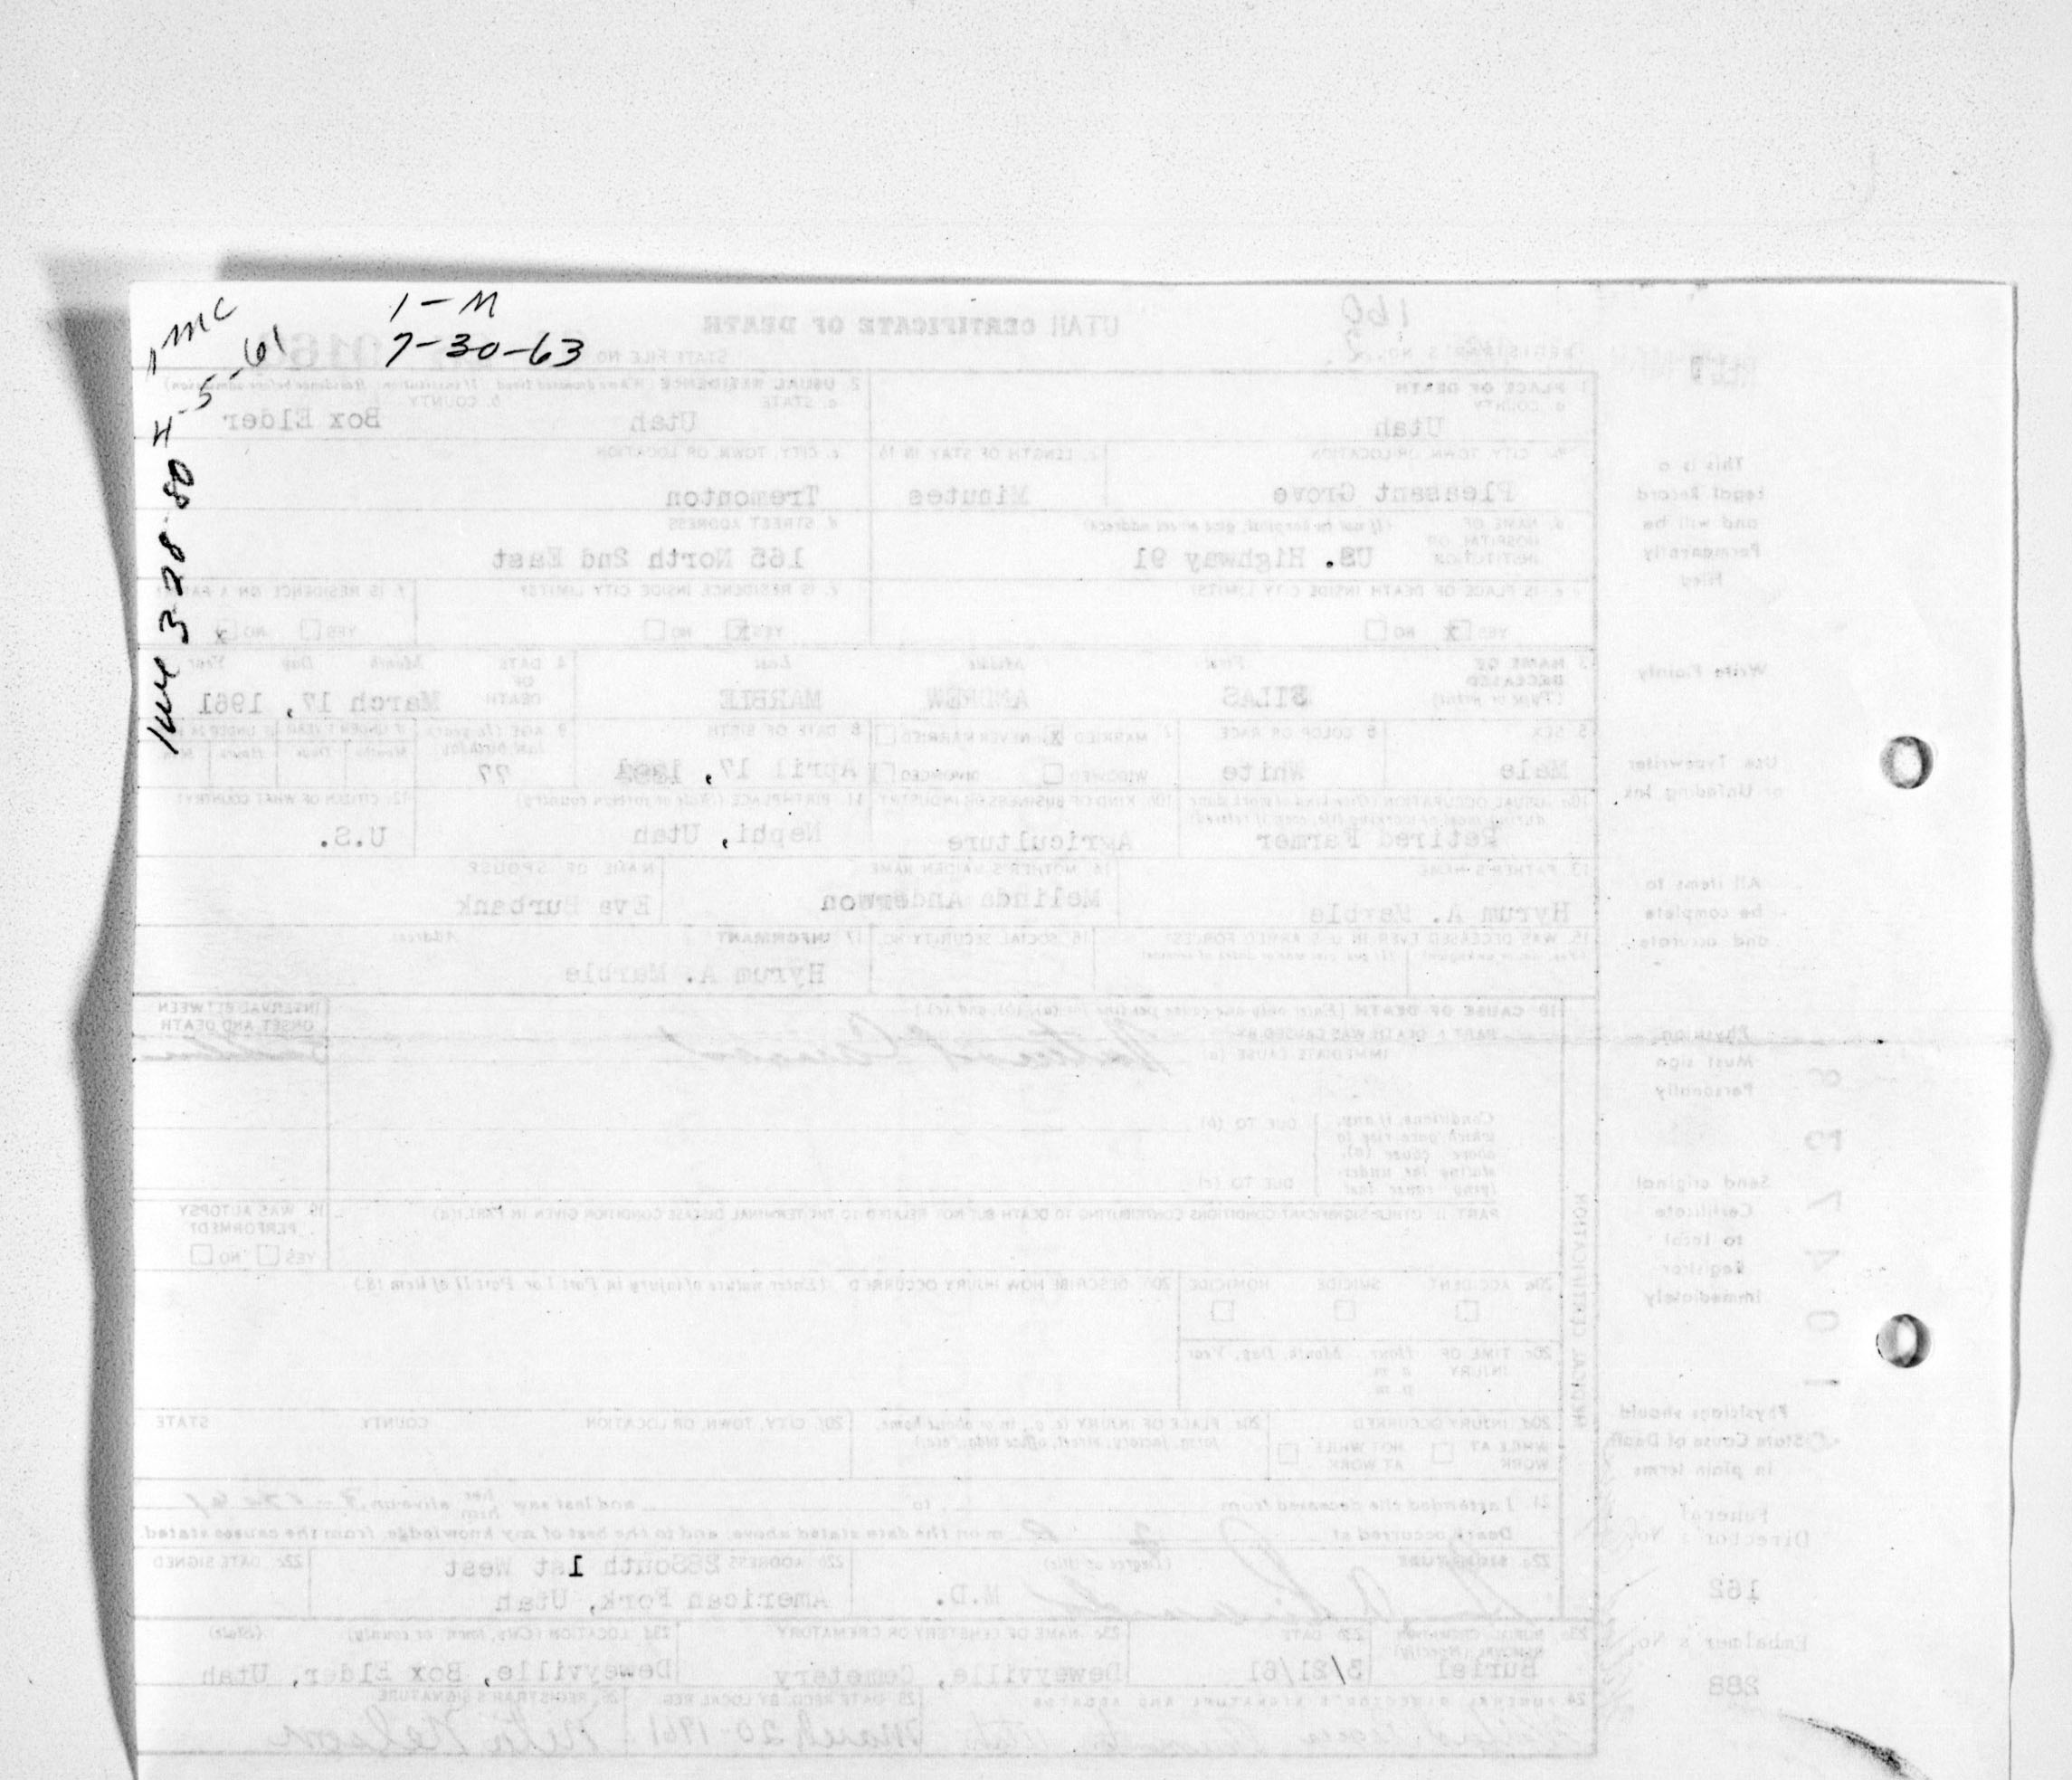 1-M
7-30-63
1 mc
4-5-61
1 mc 3-28-80
UTAH CERTIFICATE OF DEATH
160
REGISTRAR'S NO. 2.
STATE FILE NO.
1. PLACE OF DEATH
a. COUNTY
Utah
2. USUAL RESIDENCE (Where deceased lived. If institution: Residence before admission)
a. STATE
Utah
b. COUNTY
Box Elder
b. CITY, TOWN, OR LOCATION
Pleasant Grove
c. LENGTH OF STAY IN 1b
Minutes
c. CITY, TOWN, OR LOCATION
Tremonton
d. NAME OF HOSPITAL OR INSTITUTION (If not in hospital, give street address)
US. Highway 91
d. STREET ADDRESS
165 North 2nd East
e. IS PLACE OF DEATH INSIDE CITY LIMITS?
YES x NO
e. IS RESIDENCE INSIDE CITY LIMITS?
YES x NO
f. IS RESIDENCE ON A FARM?
YES NO x
3. NAME OF DECEASED (Type or print)
First Middle Last
SILAS ANDREW MARBLE
4. DATE OF DEATH
Month Day Year
March 17, 1961
5. SEX
Male
6. COLOR OR RACE
White
7. MARRIED x NEVER MARRIED
WIDOWED DIVORCED
8. DATE OF BIRTH
April 17,
9. AGE (In years last birthday)
77
IF UNDER 1 YEAR
Months Days Hours Min.
10a. USUAL OCCUPATION (Give kind of work done during most of working life, even if retired)
Retired Farmer
10b. KIND OF BUSINESS OR INDUSTRY
Agriculture
11. BIRTHPLACE (State or foreign country)
Nephi, Utah
12. CITIZEN OF WHAT COUNTRY?
U.S.
13. FATHER'S NAME
Hyrum A. Marble
14. MOTHER'S MAIDEN NAME
Melinda Anderson
NAME OF SPOUSE
Eva Burbank
15. WAS DECEASED EVER IN U.S. ARMED FORCES?
16. SOCIAL SECURITY NO.
17. INFORMANT Address
Hyrum A. Marble
18. CAUSE OF DEATH (Enter only one cause per line for (a), (b), and (c).)
PART I. DEATH WAS CAUSED BY:
IMMEDIATE CAUSE (a)
INTERVAL BETWEEN ONSET AND DEATH
Conditions, if any, which gave rise to above cause (a), stating the underlying cause last.
DUE TO (b)
DUE TO (c)
PART II. OTHER SIGNIFICANT CONDITIONS CONTRIBUTING TO DEATH BUT NOT RELATED TO THE TERMINAL DISEASE CONDITION GIVEN IN PART I(a)
19. WAS AUTOPSY PERFORMED?
YES NO
20a. ACCIDENT SUICIDE HOMICIDE
20b. DESCRIBE HOW INJURY OCCURRED. (Enter nature of injury in Part I or Part II of item 18.)
20c. TIME OF INJURY
Hour Month, Day, Year
a. m.
p. m.
20d. INJURY OCCURRED
WHILE AT WORK NOT WHILE AT WORK
20e. PLACE OF INJURY (e. g., in or about home, farm, factory, street, office bldg., etc.)
20f. CITY, TOWN, OR LOCATION COUNTY STATE
21. I attended the deceased from , to and last saw her him alive on
Death occurred at m on the date stated above; and to the best of my knowledge, from the causes stated.
22a. SIGNATURE (Degree or title)
M.D.
22b. ADDRESS
South 1st West
American Fork, Utah
22c. DATE SIGNED
23a. BURIAL, CREMATION, REMOVAL (Specify)
Burial
23b. DATE
3/21/61
23c. NAME OF CEMETERY OR CREMATORY
Deweyville, Cemetery
23d. LOCATION (City, town, or county) (State)
Deweyville, Box Elder, Utah
24. FUNERAL DIRECTOR'S SIGNATURE AND ADDRESS
25. DATE RECD. BY LOCAL REG.
March 20-1961
26. REGISTRAR'S SIGNATURE
Neta Nelson
MEDICAL CERTIFICATION
This is a
Legal Record
and will be
Permanently
Filed
Write Plainly
Use Typewriter
or Unfading Ink
All items to
be complete
and accurate
Physician
Must sign
Personally
Send original
Certificate
to local
Registrar
immediately
Physicians should
State Cause of Death
in plain terms
Funeral
Director's No.
162
Embalmer's No.
288